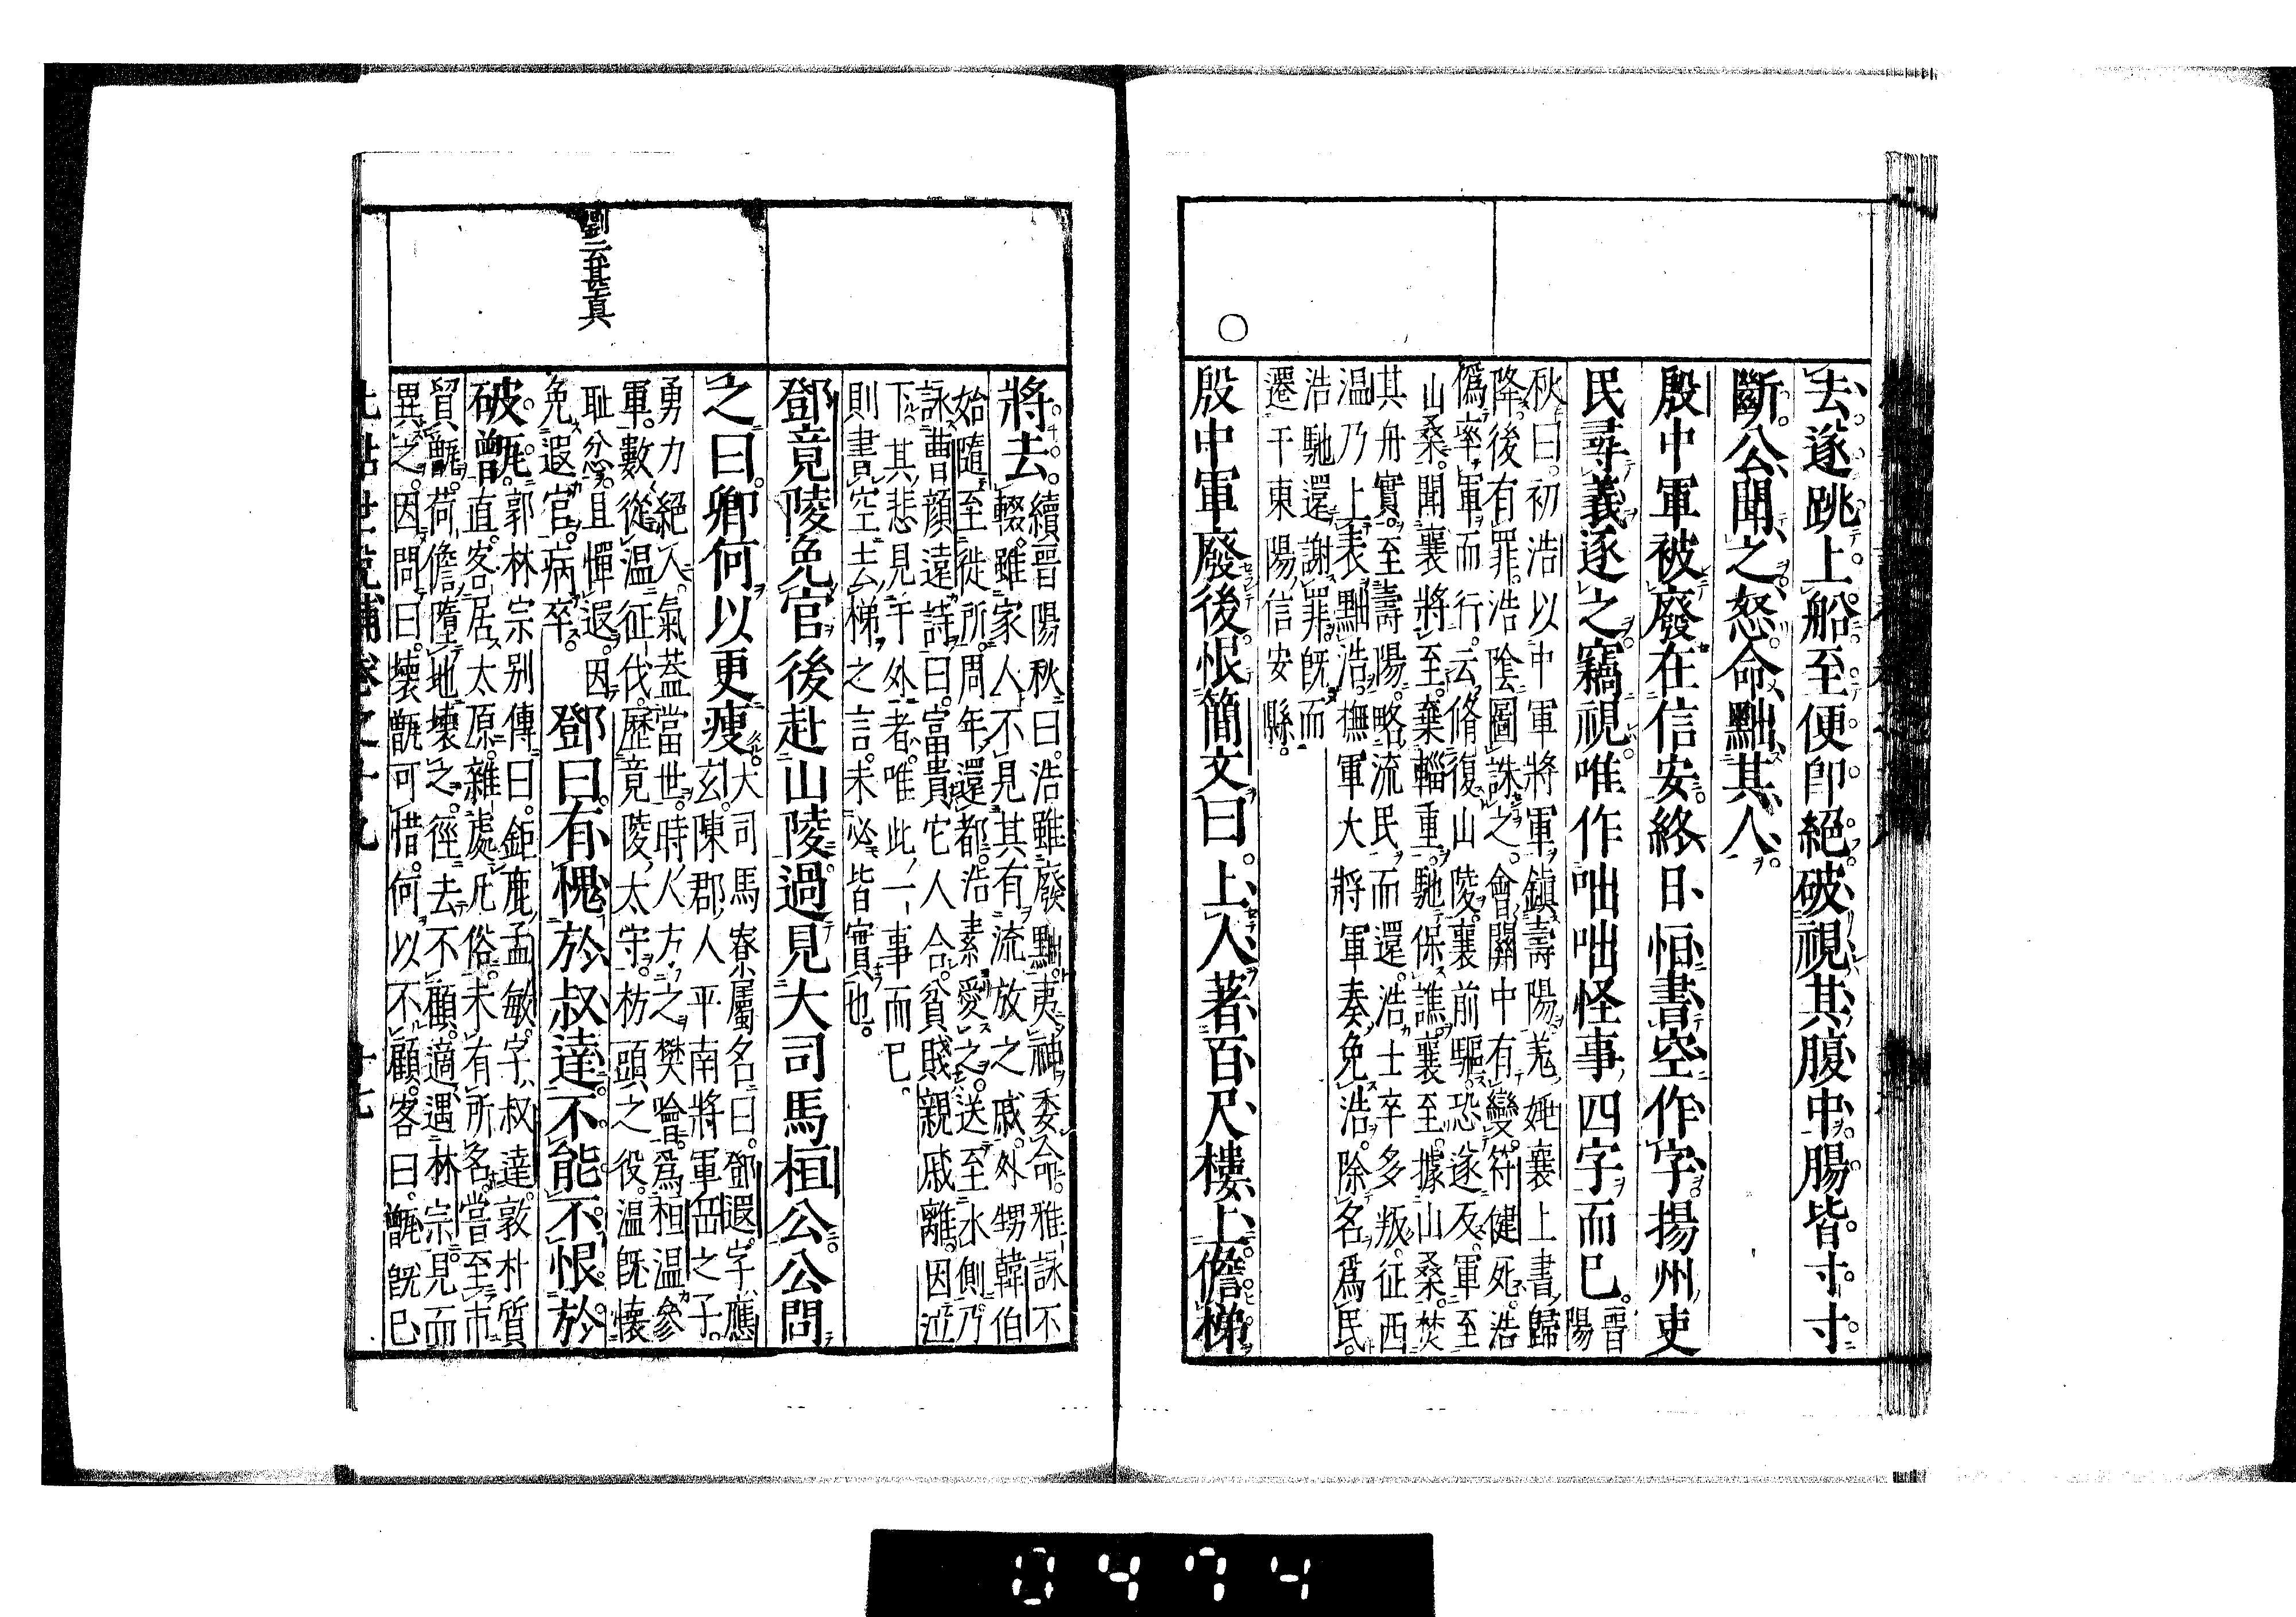 去遂跳上船至便卽絕破視其腹中腸皆寸寸
斷公聞之怒命黜其人
殷中軍被廢在信安終日恒書空作字揚州吏
民尋義逐之竊視唯作咄咄怪事四字而已晉陽
秋曰初浩以中軍將軍鎮壽陽羗姚襄上書歸
降後有罪浩陰圖誅之會關中有變符健死浩
僞率軍而行云脩復山陵襄前驅恐遂反軍至
山桑聞襄將至棄輜重馳保譙襄至據山桑焚
其舟實至壽陽略流民而還浩士卒多叛征西
温乃上表黜浩撫軍大將軍奏免浩除名爲民
浩馳還謝罪旣而
遷于東陽信安縣
○
殷中軍廢後恨簡文曰上人著百尺樓上儋梯
將去續晉陽秋曰浩雖廢黜夷神委命雅詠不
輟雖家人不見其有流放之戚外甥韓伯
始隨至徙所周年還都浩素愛之送至水側乃
詠曹顔遠詩曰富貴它人合貧賤親戚離因泣
下其悲見于外者唯此一事而已
則書空去梯之言未必皆實也
鄧竟陵免官後赴山陵過見大司馬桓公公問
之曰卿何以更瘦大司馬寮屬名曰鄧遐字應
玄陳郡人平南將軍岳之子
勇力絕人氣葢當世時人方之樊噲爲桓温參
軍數從温征伐歷竟陵太守枋頭之役温旣懐
耻忿且憚遐因
免遐官病卒
鄧曰有愧於叔達不能不恨於
劉云甚真
破甑郭林宗别傳曰鉅鹿孟敏字叔達敦朴質
直客居太原雜處凡俗未有所名嘗至市
貿甑荷儋墮地壞之徑去不顧適遇林宗見而
異之因問曰壞甑可惜何以不顧客曰甑旣已
世說補卷之十九
十七
0474